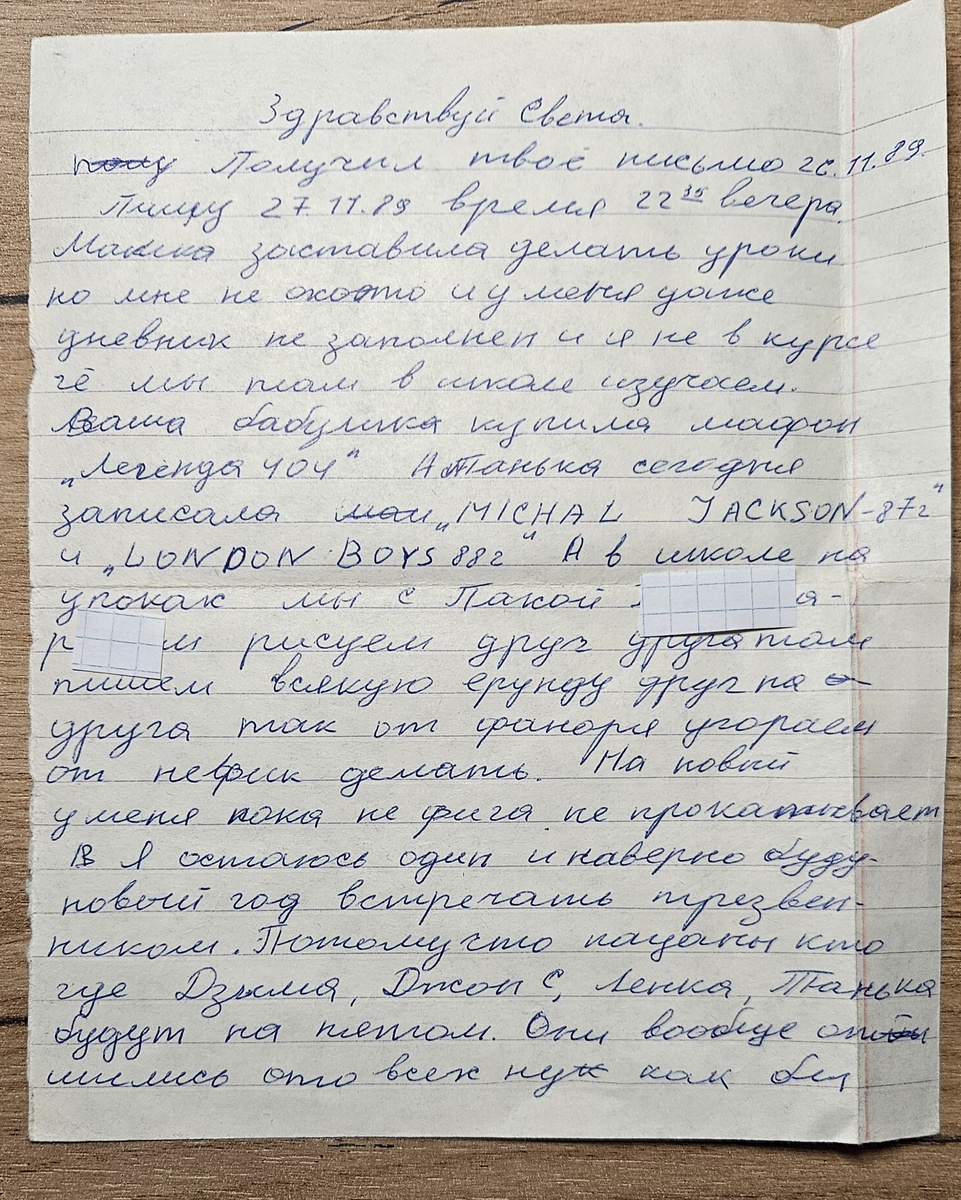 Здравствуй Света.
Получил твоё письмо 26.11.89.
Пишу 27.11.89 время 22 35 вечера.
Мамка заставила делать уроки
но мне не охото и у меня даже
дневник не заполнен и я не в курсе
чё мы там в школе изучаем.
Ваша бабушка купила мафон
„Легенда 404“ А Танька сегодня
записала „MICHAL JACKSON-87г“
и „LONDON BOYS 88г“ А в школе на
уроках мы с Пакой а-
р м рисуем друг друга там
пишем всякую ерунду друг на
друга так от фанаря угораем
от нефик делать. На новый
у меня пока не фига не прокатывает
Я остаюсь один и наверно буду
новый год встречать трезвен-
ником. Потому что пацаны кто
где Дзыма, Джон С, Ленка, Танька
будут на пятом. Они вообще отби
лись ото всех ну как бы